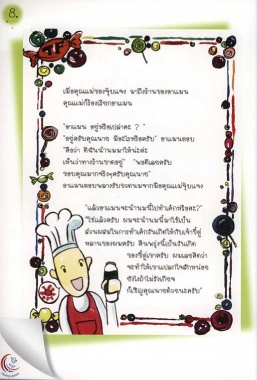 8.
เมื่อคุณแม่ของจุ๊บแจง มาถึงร้านของอาแมน
คุณแม่ก็ร้องเรียกอาแมน
"อาแมน อยู่หรือเปล่าคะ ? "
"อยู่ครับคุณนาย มีอะไรหรือครับ" อาแมนตอบ
"คือว่า ดิฉันนำนมมาให้น่ะค่ะ
เห็นว่าทางร้านขาดอยู่" "พอดีเลยครับ
ขอบคุณมากจริงๆครับคุณนาย"
อาแมนตอบพลางรับขวดนมจากมือคุณแม่จุ๊บแจง
"แล้วอาแมนจะนำนมนี้ไปทำเค้กหรือคะ?"
"ใช่แล้วครับ ผมจะนำนมนี้มาใช้เป็น
ส่วนผสมในการทำเค้กวันเกิดให้กับเจ้าตู่
หลานของผมครับ คืนพรุ่งนี้เป็นวันเกิด
ของพี่ตู่เขาครับ ผมเลยคิดว่า
จะทำให้เขาแปลกใจสักหน่อย
ยังไงถ้าไม่รังเกียจ
ก็เชิญคุณนายด้วยนะครับ"